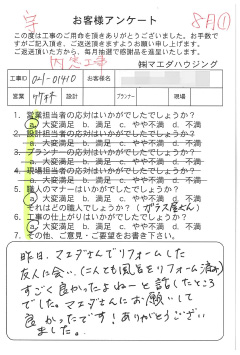 お客様アンケート
8月①
この度は工事のご用命を頂きありがとうございました。お手数で
すがご記入頂き、ご返送頂きますようお願い申し上げます。
ご返送いただいた方から、毎月抽選で感謝品を進呈いたします。
内窓工事
㈱マエダハウジング
工事ID
021-01410
お客様名
営業
竹林
設計
プランナー
現場
1. 営業担当者の応対はいかがでしたでしょうか？
a. 大変満足 b. 満足 c. やや不満 d. 不満
2. 設計担当者の応対はいかがでしたでしょうか？
a. 大変満足 b. 満足 c. やや不満 d. 不満
3. プランナーの応対はいかがでしたでしょうか？
a. 大変満足 b. 満足 c. やや不満 d. 不満
4. 現場担当者の応対はいかがでしたでしょうか？
a. 大変満足 b. 満足 c. やや不満 d. 不満
5. 職人のマナーはいかがでしたでしょうか？
a. 大変満足 b. 満足 c. やや不満 d. 不満
それはどの職人でしょうか？（ガラス屋さん）
6. 工事の仕上がりはいかがでしたでしょうか？
a. 大変満足 b. 満足 c. やや不満 d. 不満
その他、ご意見・ご要望をお書き下さい。
昨日、マエダさんでリフォームした
友人に会い、(二人でも風呂をリフォーム済み)
すごく良かったよねーと話したところ
でした。マエダさんにお願いして
良かったです！ありがとうござい
ました。